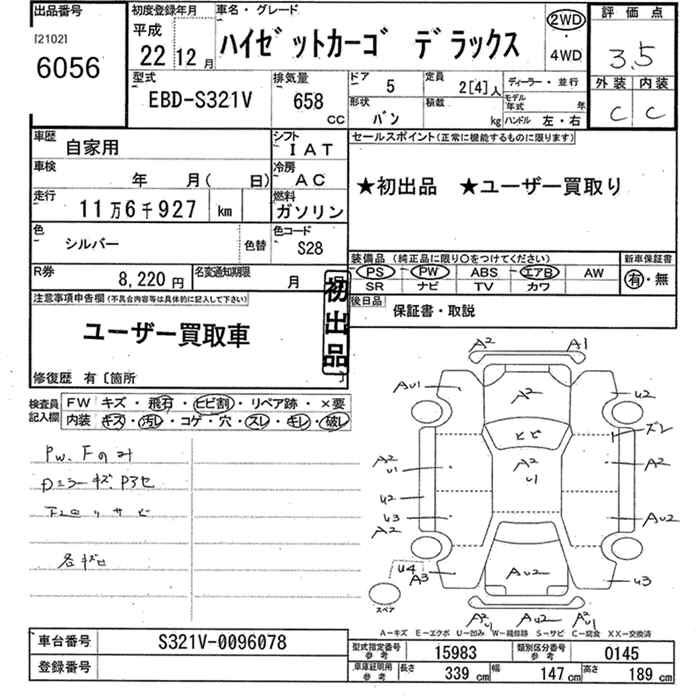 出品番号
[2102]
6056
初度登録年月
平成
22 12 月
車名・グレード
ハイゼットカーゴ デラックス
2WD
・
4WD
評価点
3.5
外装 内装
C C
型式
EBD-S321V
排気量
658
CC
ドア 5
形状 バン
定員 2[4]人
積載 kg
ディーラー・並行
モデル年式 年
ハンドル 左・右
車歴 自家用
シフト IAT
車検 年 月( 日)
冷房 AC
走行 11万6千927 km
燃料 ガソリン
色 シルバー 色替
色コード S28
R券 8,220円
名変通知期限 月
セールスポイント(正常に機能するものに限ります)
★初出品 ★ユーザー買取り
装備品 (純正品に限り○をつけてください)
PS PW ABS エアB AW
SR ナビ TV カワ
新車保証書
有・無
後日品 保証書・取説
注意事項申告欄(不具合内容等は具体的に記入して下さい)
ユーザー買取車
初出品
修復歴 有〔箇所 〕
検査員記入欄
FW キズ・飛石・ヒビ割・リペア跡・×要
内装 キズ・汚レ・コゲ・穴・スレ・キレ・破レ
PW、Fのみ
Dミラーキズ、
A2 A1
AU1 A2 U2
ヒビ ズレ
A2 U1 A2 U1 A2
U2
U3 AU2
A2
U4 A3 AU2 U3
スペア
A2 U1 AU2 A2 U1
A-キズ E-エクボ U-凹み W-補修跡 S-サビ C-腐食 XX-交換済
車台番号 S321V-0096078
登録番号
型式指定番号 参考 15983
類別区分番号 参考 0145
車庫証明用 参考 長さ 339 cm 幅 147 cm 高さ 189 cm